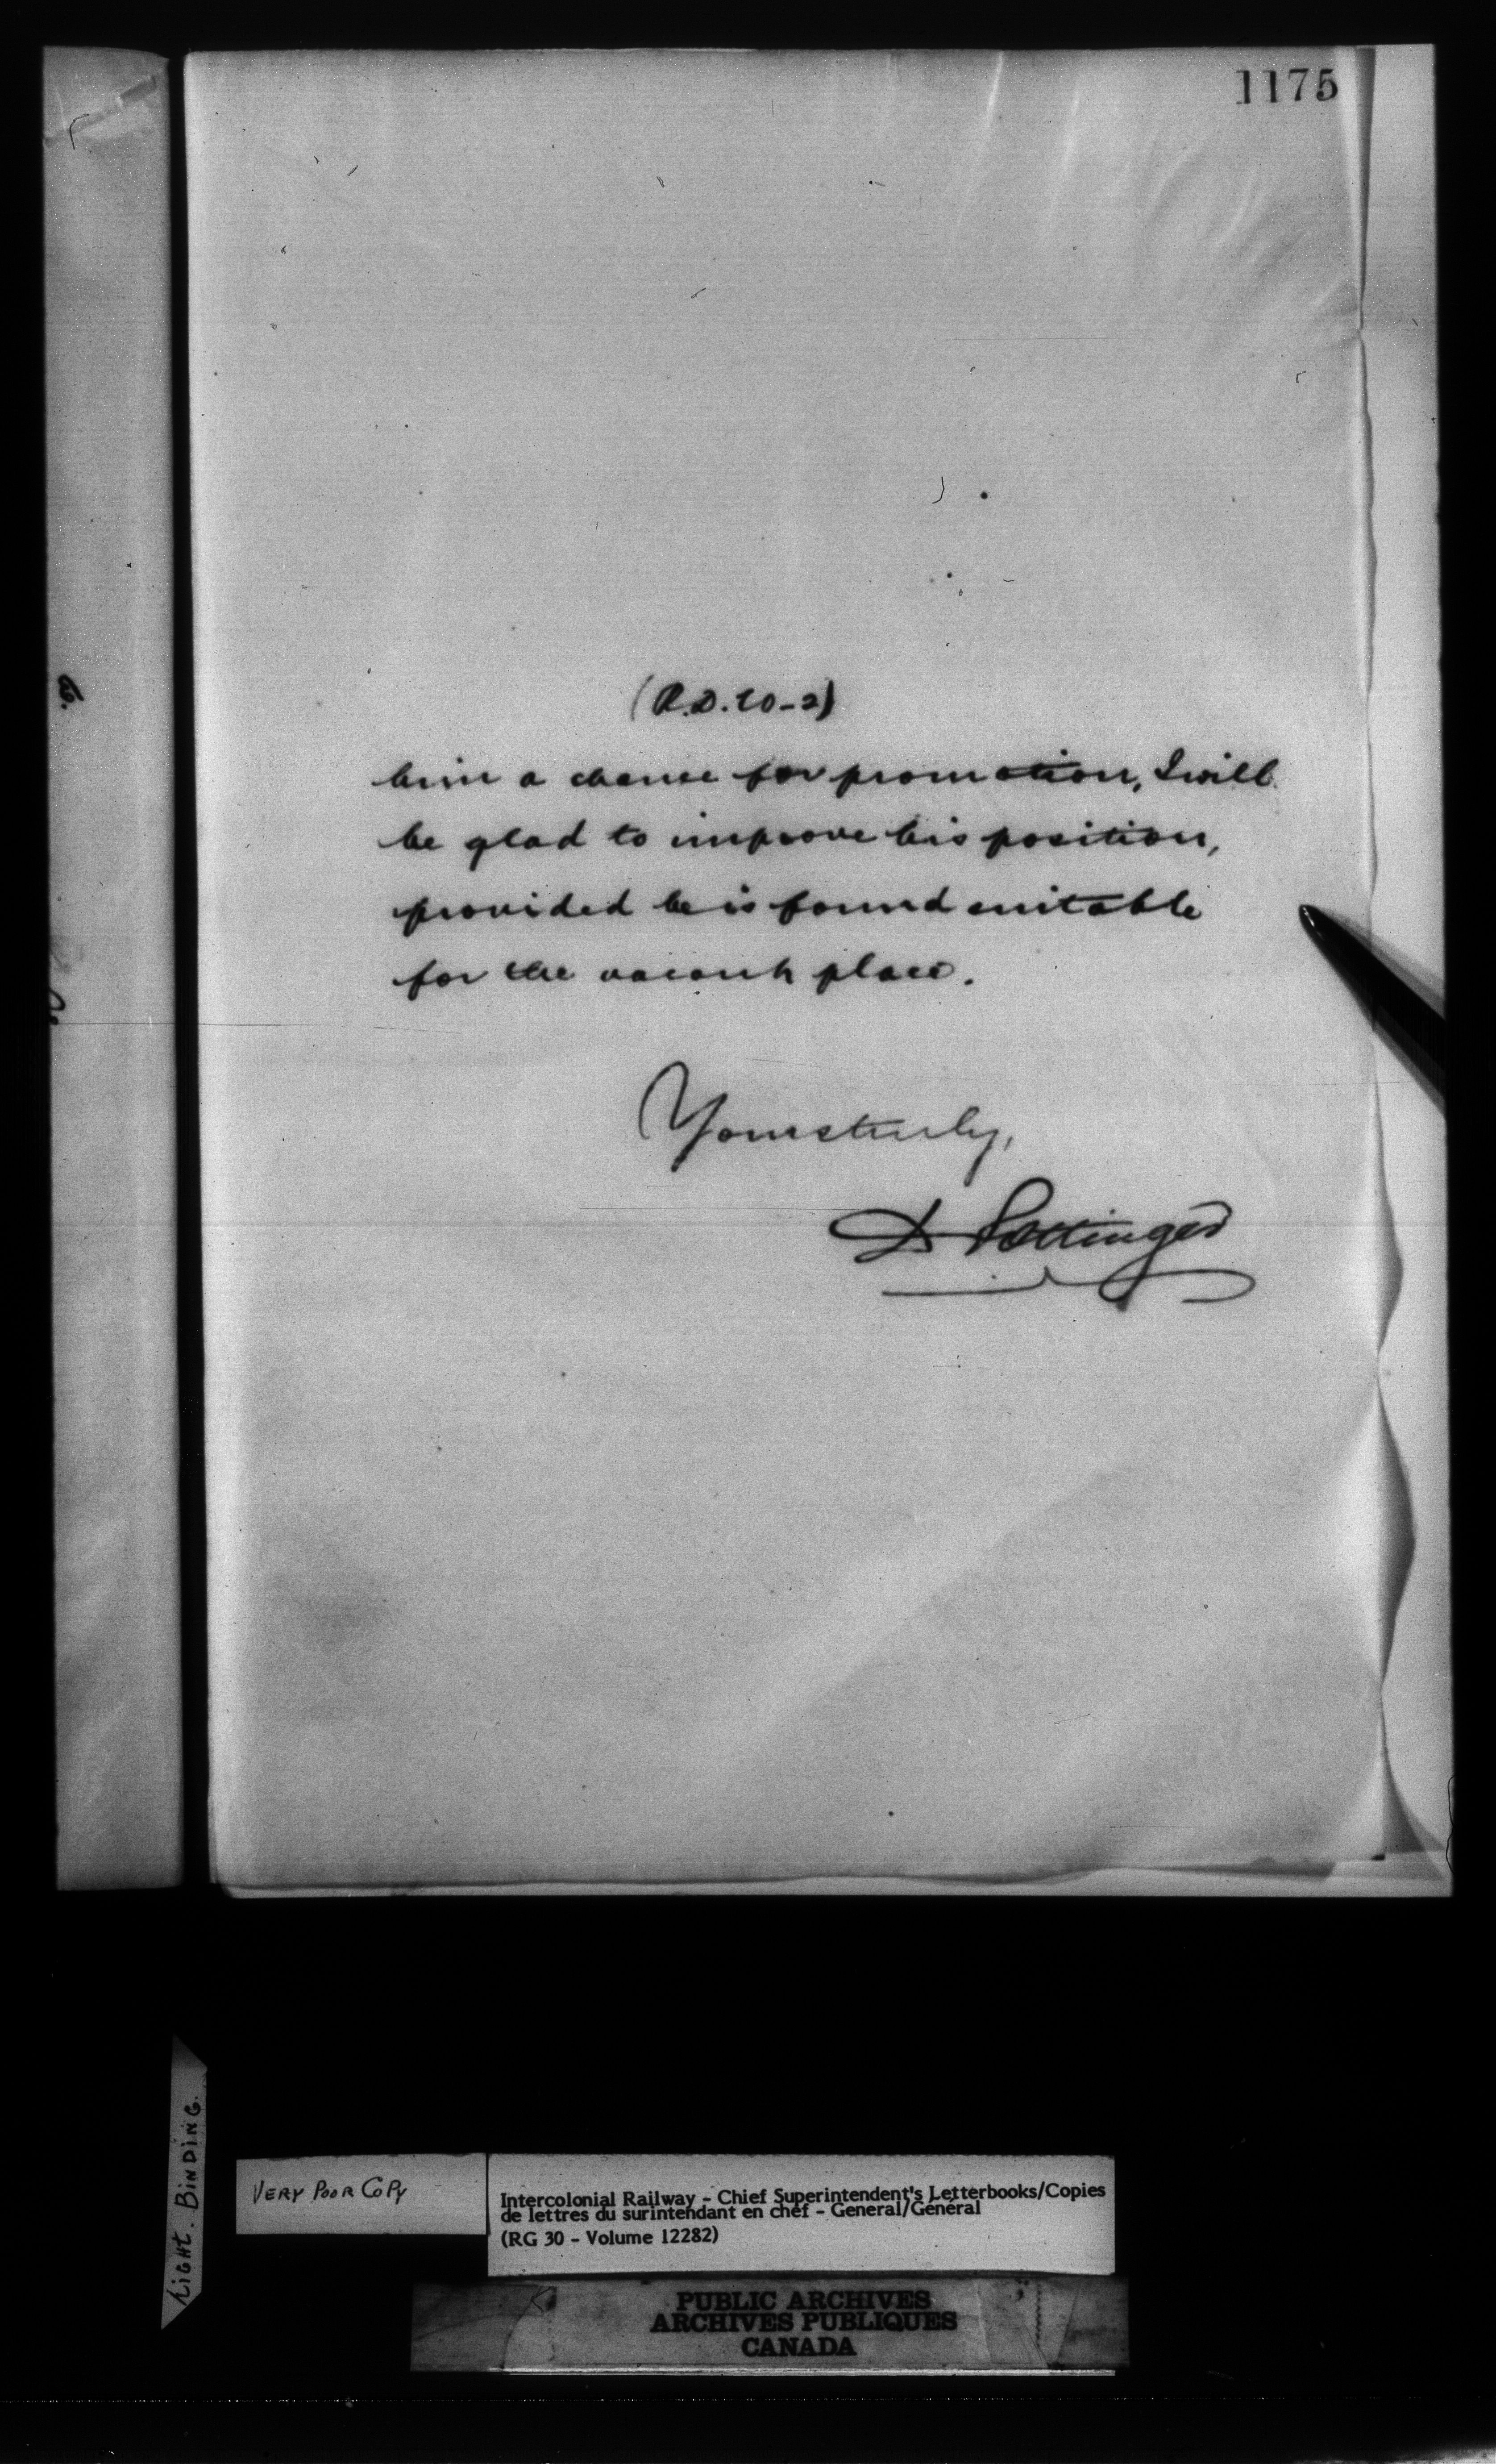 1175
(R.D. 20-2)
him a chance for promotion, I will
be glad to improve his position,
provided he is found suitable
for the vacant place.
Yours truly,
D Pottinger
TIGHT. BINDING.
VERY POOR COPY
Intercolonial Railway - Chief Superintendent's Letterbooks/Copies
de lettres du surintendant en chef - General/Général
(RG 30 - Volume 12282)
PUBLIC ARCHIVES
ARCHIVES PUBLIQUES
CANADA